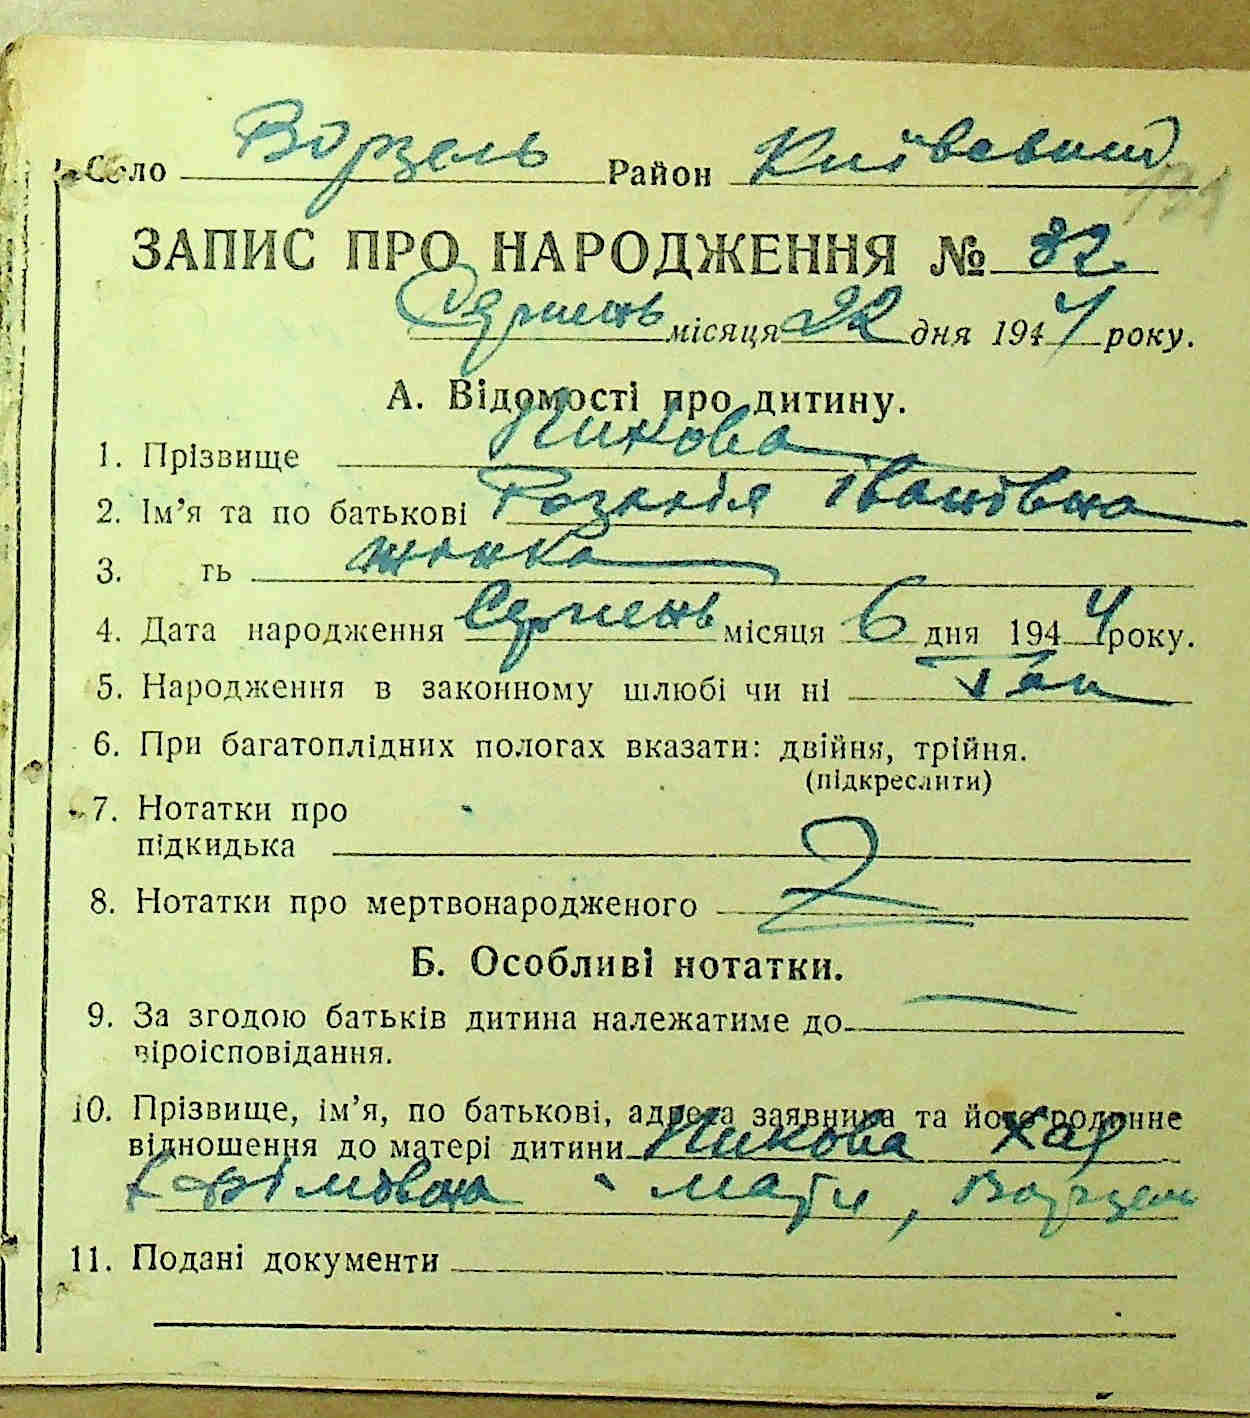 Село Ворзель Район Київський
ЗАПИС ПРО НАРОДЖЕННЯ № 32
Серпень місяця 22 дня 1944 року.
А. Відомості про дитину.
1. Прізвище Пикова
2. Ім’я та по батькові Розалія Іванівна
3. ть жінка
4. Дата народження Серпень місяця 6 дня 1944 року.
5. Народження в законному шлюбі чи ні Так
6. При багатоплідних пологах вказати: двійня, трійня.
(підкреслити)
7. Нотатки про
підкидька
8. Нотатки про мертвонародженого
Б. Особливі нотатки.
9. За згодою батьків дитина належатиме до
віроісповідання.
10. Прізвище, ім’я, по батькові, адреса заявника та його родинне
відношення до матері дитини Пикова
мати, Ворзель
11. Подані документи